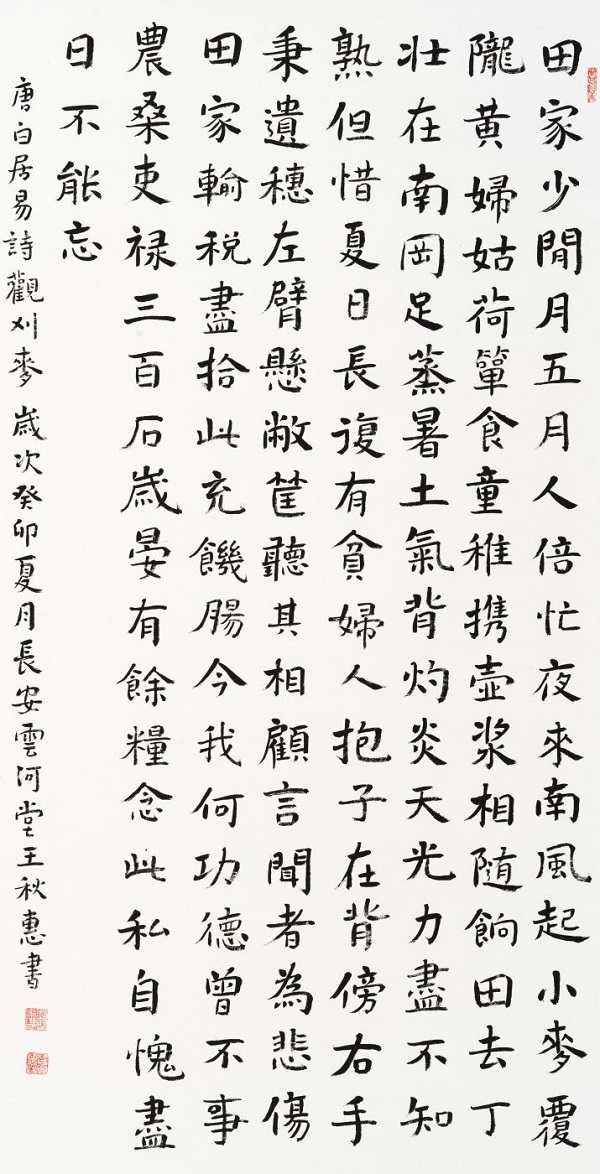 田家少閒月五月人倍忙夜來南風起小麥覆
隴黃婦姑荷簞食童稚携壺漿相隨餉田去丁
壯在南岡足蒸暑土氣背灼炎天光力盡不知
熱但惜夏日長復有貧婦人抱子在背傍右手
秉遺穗左臂懸敝筐聽其相顧言聞者為悲傷
田家輸稅盡拾此充饑腸今我何功德曾不事
農桑吏祿三百石歲晏有餘糧念此私自愧盡
日不能忘
唐白居易詩觀刈麥 歲次癸卯夏月長安雲河堂王秋惠書